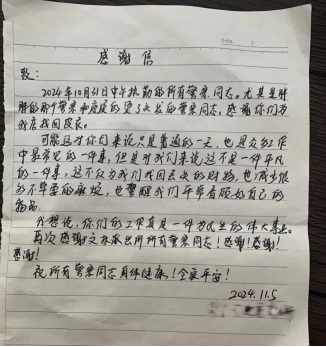 感谢信
致:
2024年10月31日中午执勤的所有警察同志。尤其是胖
胖的那个警察和度的烫了头发的警察同志。感谢你们为
我店找回皮衣。
可能这对你们来说只是普通的一天,也是众多工作
中最常见的一件事,但是对我们来说这不是一件平凡
的一件事,这不仅为我们找回丢失的财物,也减少很
的不必要的麻烦,也警醒我们平常看顾好自己的
物品。
我想说,你们的工作真是一件为民生的伟大事业。
再次感谢文林派出所所有警察同志!感谢!感谢!
感谢!
祝所有警察同志身体健康!全家平安!
2024.11.5